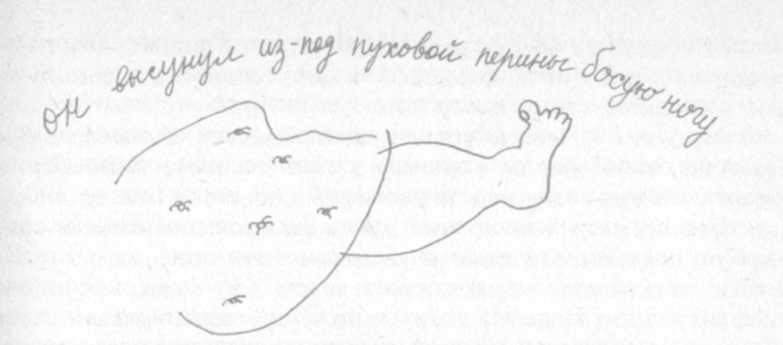 он высунул из-под пуховой перины босую ногу